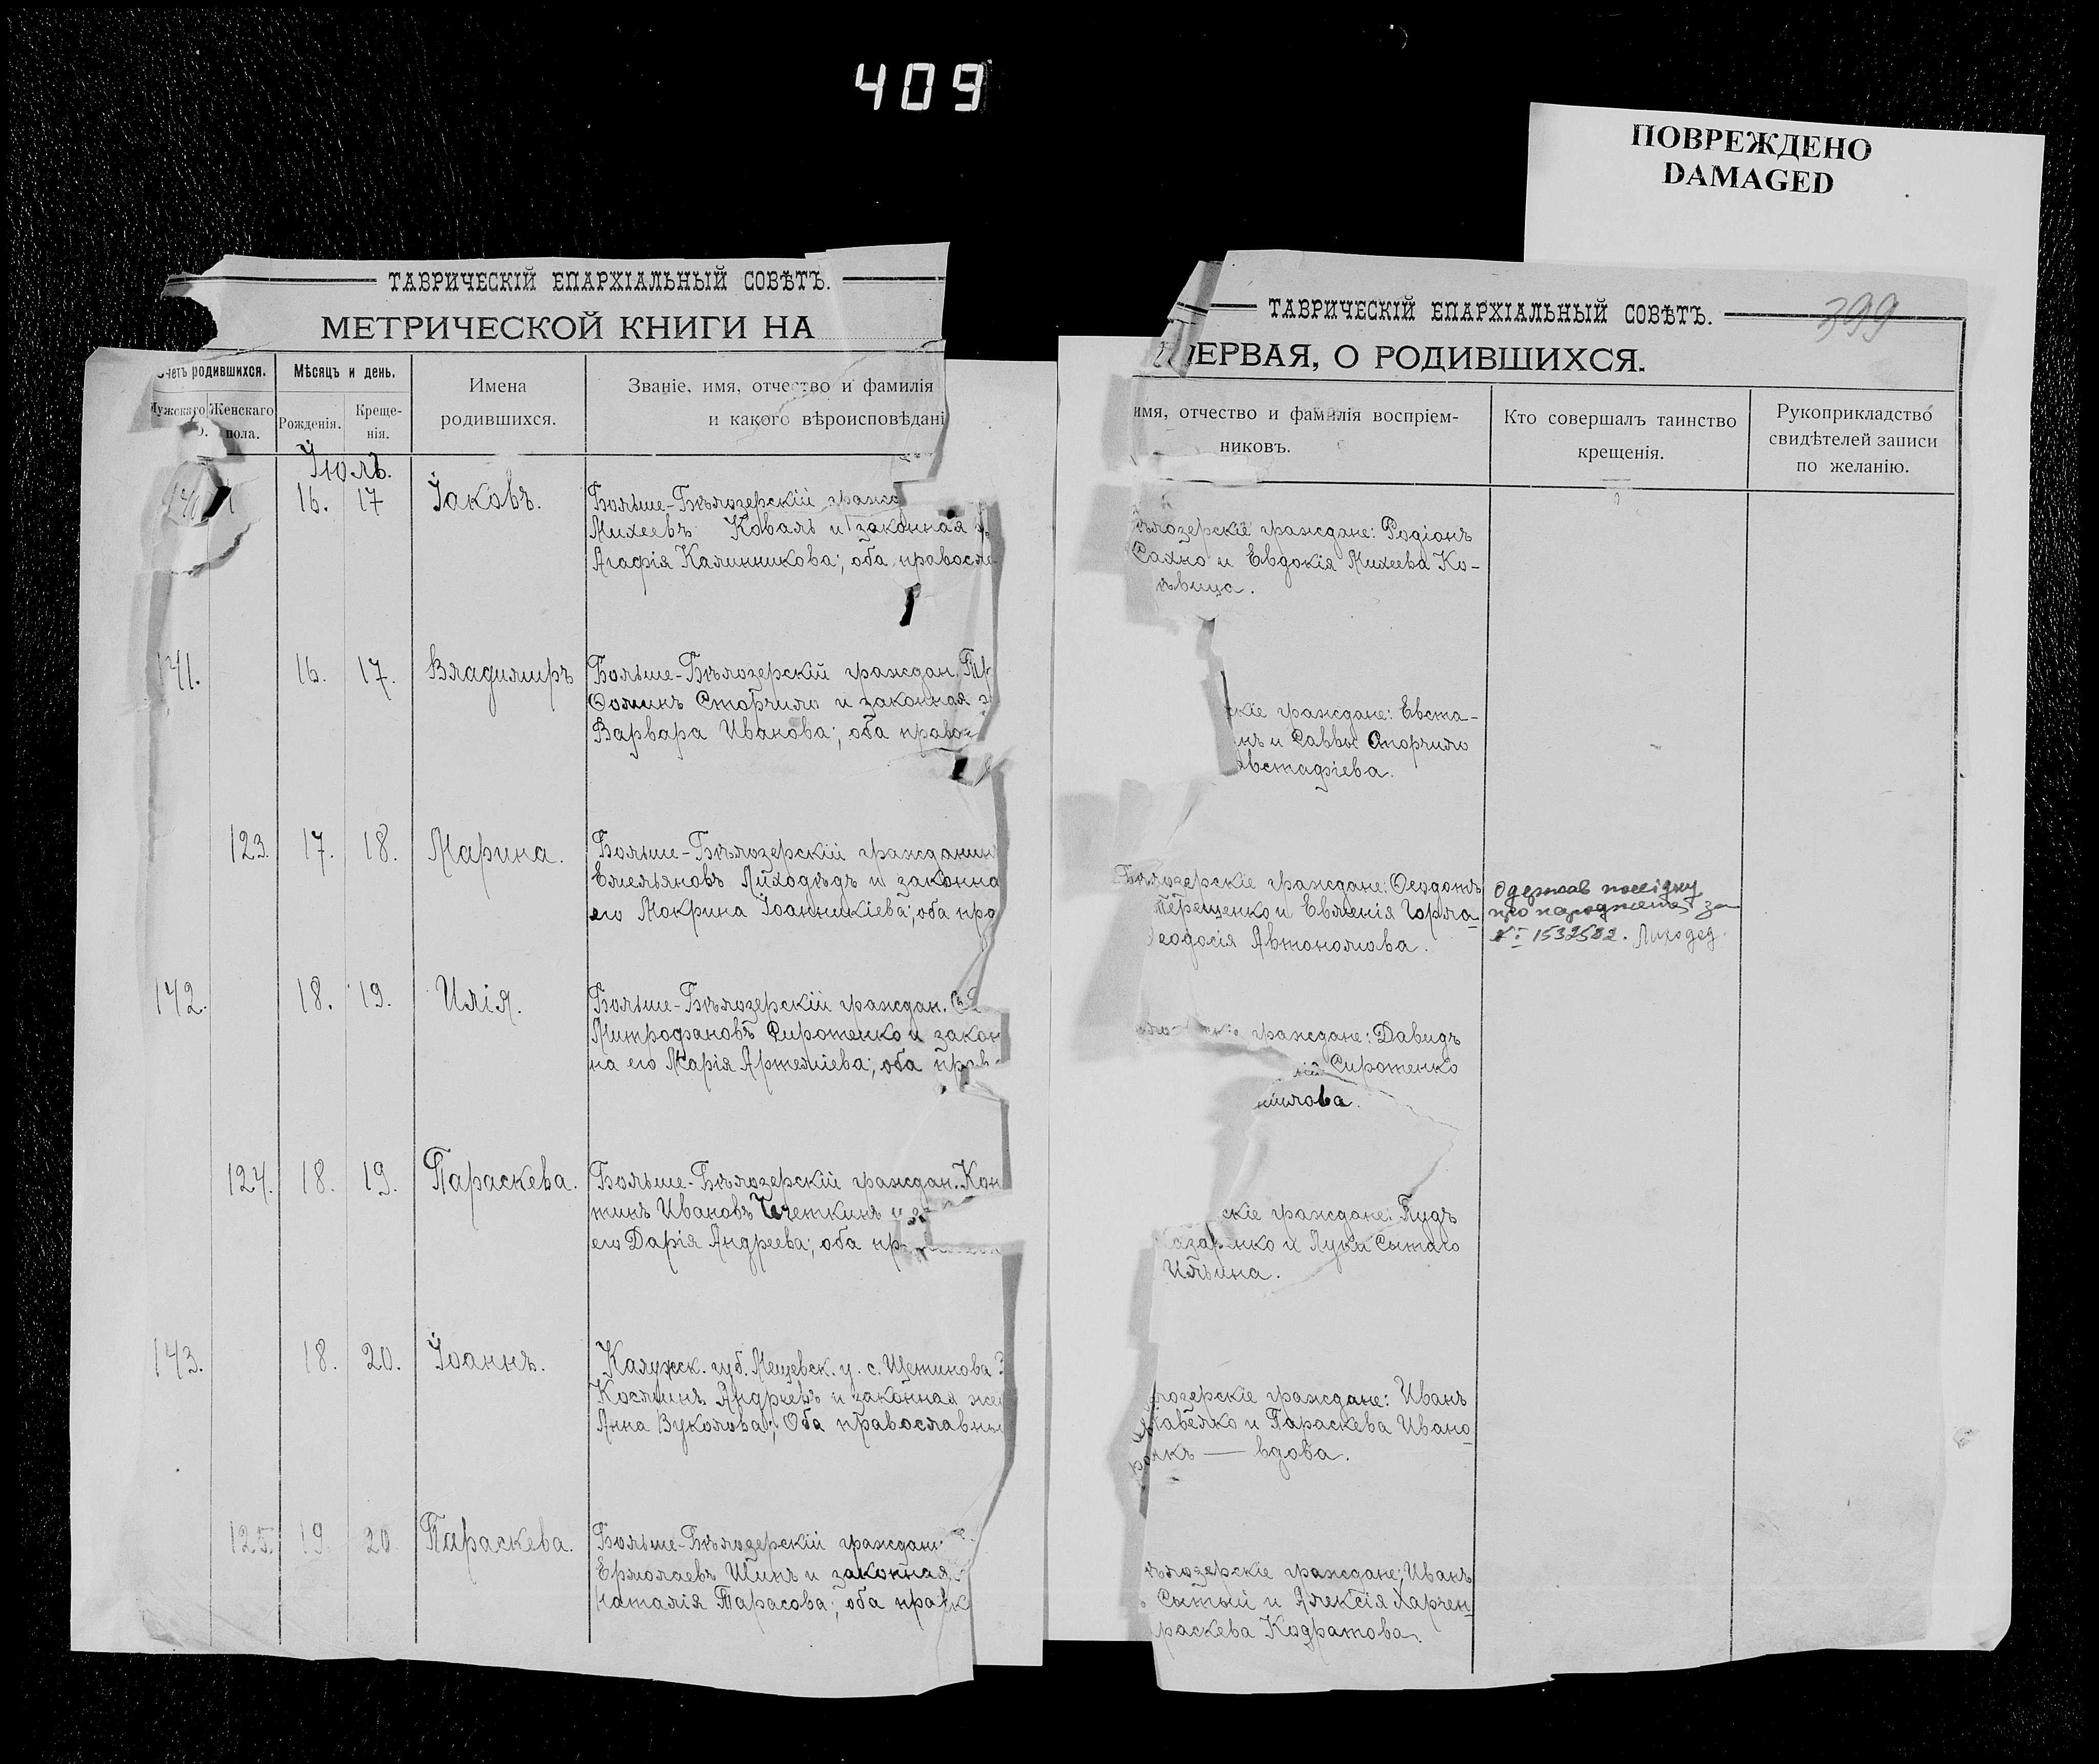 409
ПОВРЕЖДЕНО
DAMAGED
ТАВРИЧЕСКІЙ ЕПАРХІАЛЬНЫЙ СОВѢТЪ.
МЕТРИЧЕСКОЙ КНИГИ НА
родившихся.
Мѣсяцъ и день.
Имена
родившихся.
Званіе, имя, отчество и фамилія
и какого вѣроисповѣдані
Мужскаго
Женскаго
пола.
Рожденія.
Креще-
нія.
Іюль.
16. 17 Іаковъ.
Больше-Бѣлозерскій гражд
Михеевъ Коваль и законная
Агафія Калинникова; оба правосла
141. 16. 17. Владимиръ
Больше-Бѣлозерскій граждан.
Ѳоминъ Сторчило и законная
Варвара Иванова; оба право
123. 17. 18. Марина.
Больше-Бѣлозерскій гражданин
Емельяновъ Лиходѣдъ и законна
его Мокрина Іоанникіева; оба пра
142. 18. 19. Илія.
Больше-Бѣлозерскій граждан.
Митрофановъ Сиротенко и закон
на его Марія Артеміева; оба
124. 18. 19. Параскева.
Больше-Бѣлозерскій граждан. Кон
тинъ Ивановъ Чечеткинъ и
его Дарія Андреева; оба
143. 18. 20. Іоаннъ.
Калужск. губ. Мещевск. у. с. Щетинова
Косминъ Андреевъ и законная же
Анна Вуколова; Оба православны
125. 19. 20 Параскева.
Больше-Бѣлозерскій граждан
Ермолаевъ Шинъ и законная
Наталія Тарасова; оба прав
ТАВРИЧЕСКІЙ ЕПАРХІАЛЬНЫЙ СОВѢТЪ.
399
ПЕРВАЯ, О РОДИВШИХСЯ.
имя, отчество и фамилія воспріем-
никовъ.
Кто совершалъ таинство
крещенія.
Рукоприкладство
свидѣтелей записи
по желанію.
ѣлозерскіе граждане: Родіонъ
Сахно и Евдокія Михеева Ко-
скіе граждане: Евста-
и Саввы Сторчило
Евстафіева.
Бѣлозерскіе граждане: Ѳеодотъ
Терещенко и Евгенія Горла-
Ѳеодосія Автономова.
Одержав посвідку
про народження за
№ 1532502. Лиходед.
граждане: Давидъ
Сиротенко
скіе граждане: Тудъ
и Луки Сытаго
Ильина.
лозерскіе граждане: Иванъ
и Параскева Ивано-
— вдова.
ѣлозерскіе граждане: Иванъ
Сытый и Алексія Харчен-
раскева Кодратова.